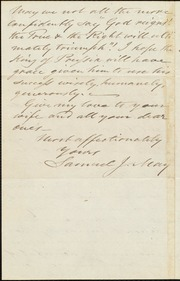 May we not all the more
confidently say God reigns
the True & the Right will ulti-
mately triumph? I hope the
King of Prussia will have
grace given him to use his
success wisely, humanely,
generously.
Give my love to your
wife and all your dear
ones—
Most affectionately
Yours
Samuel J. May